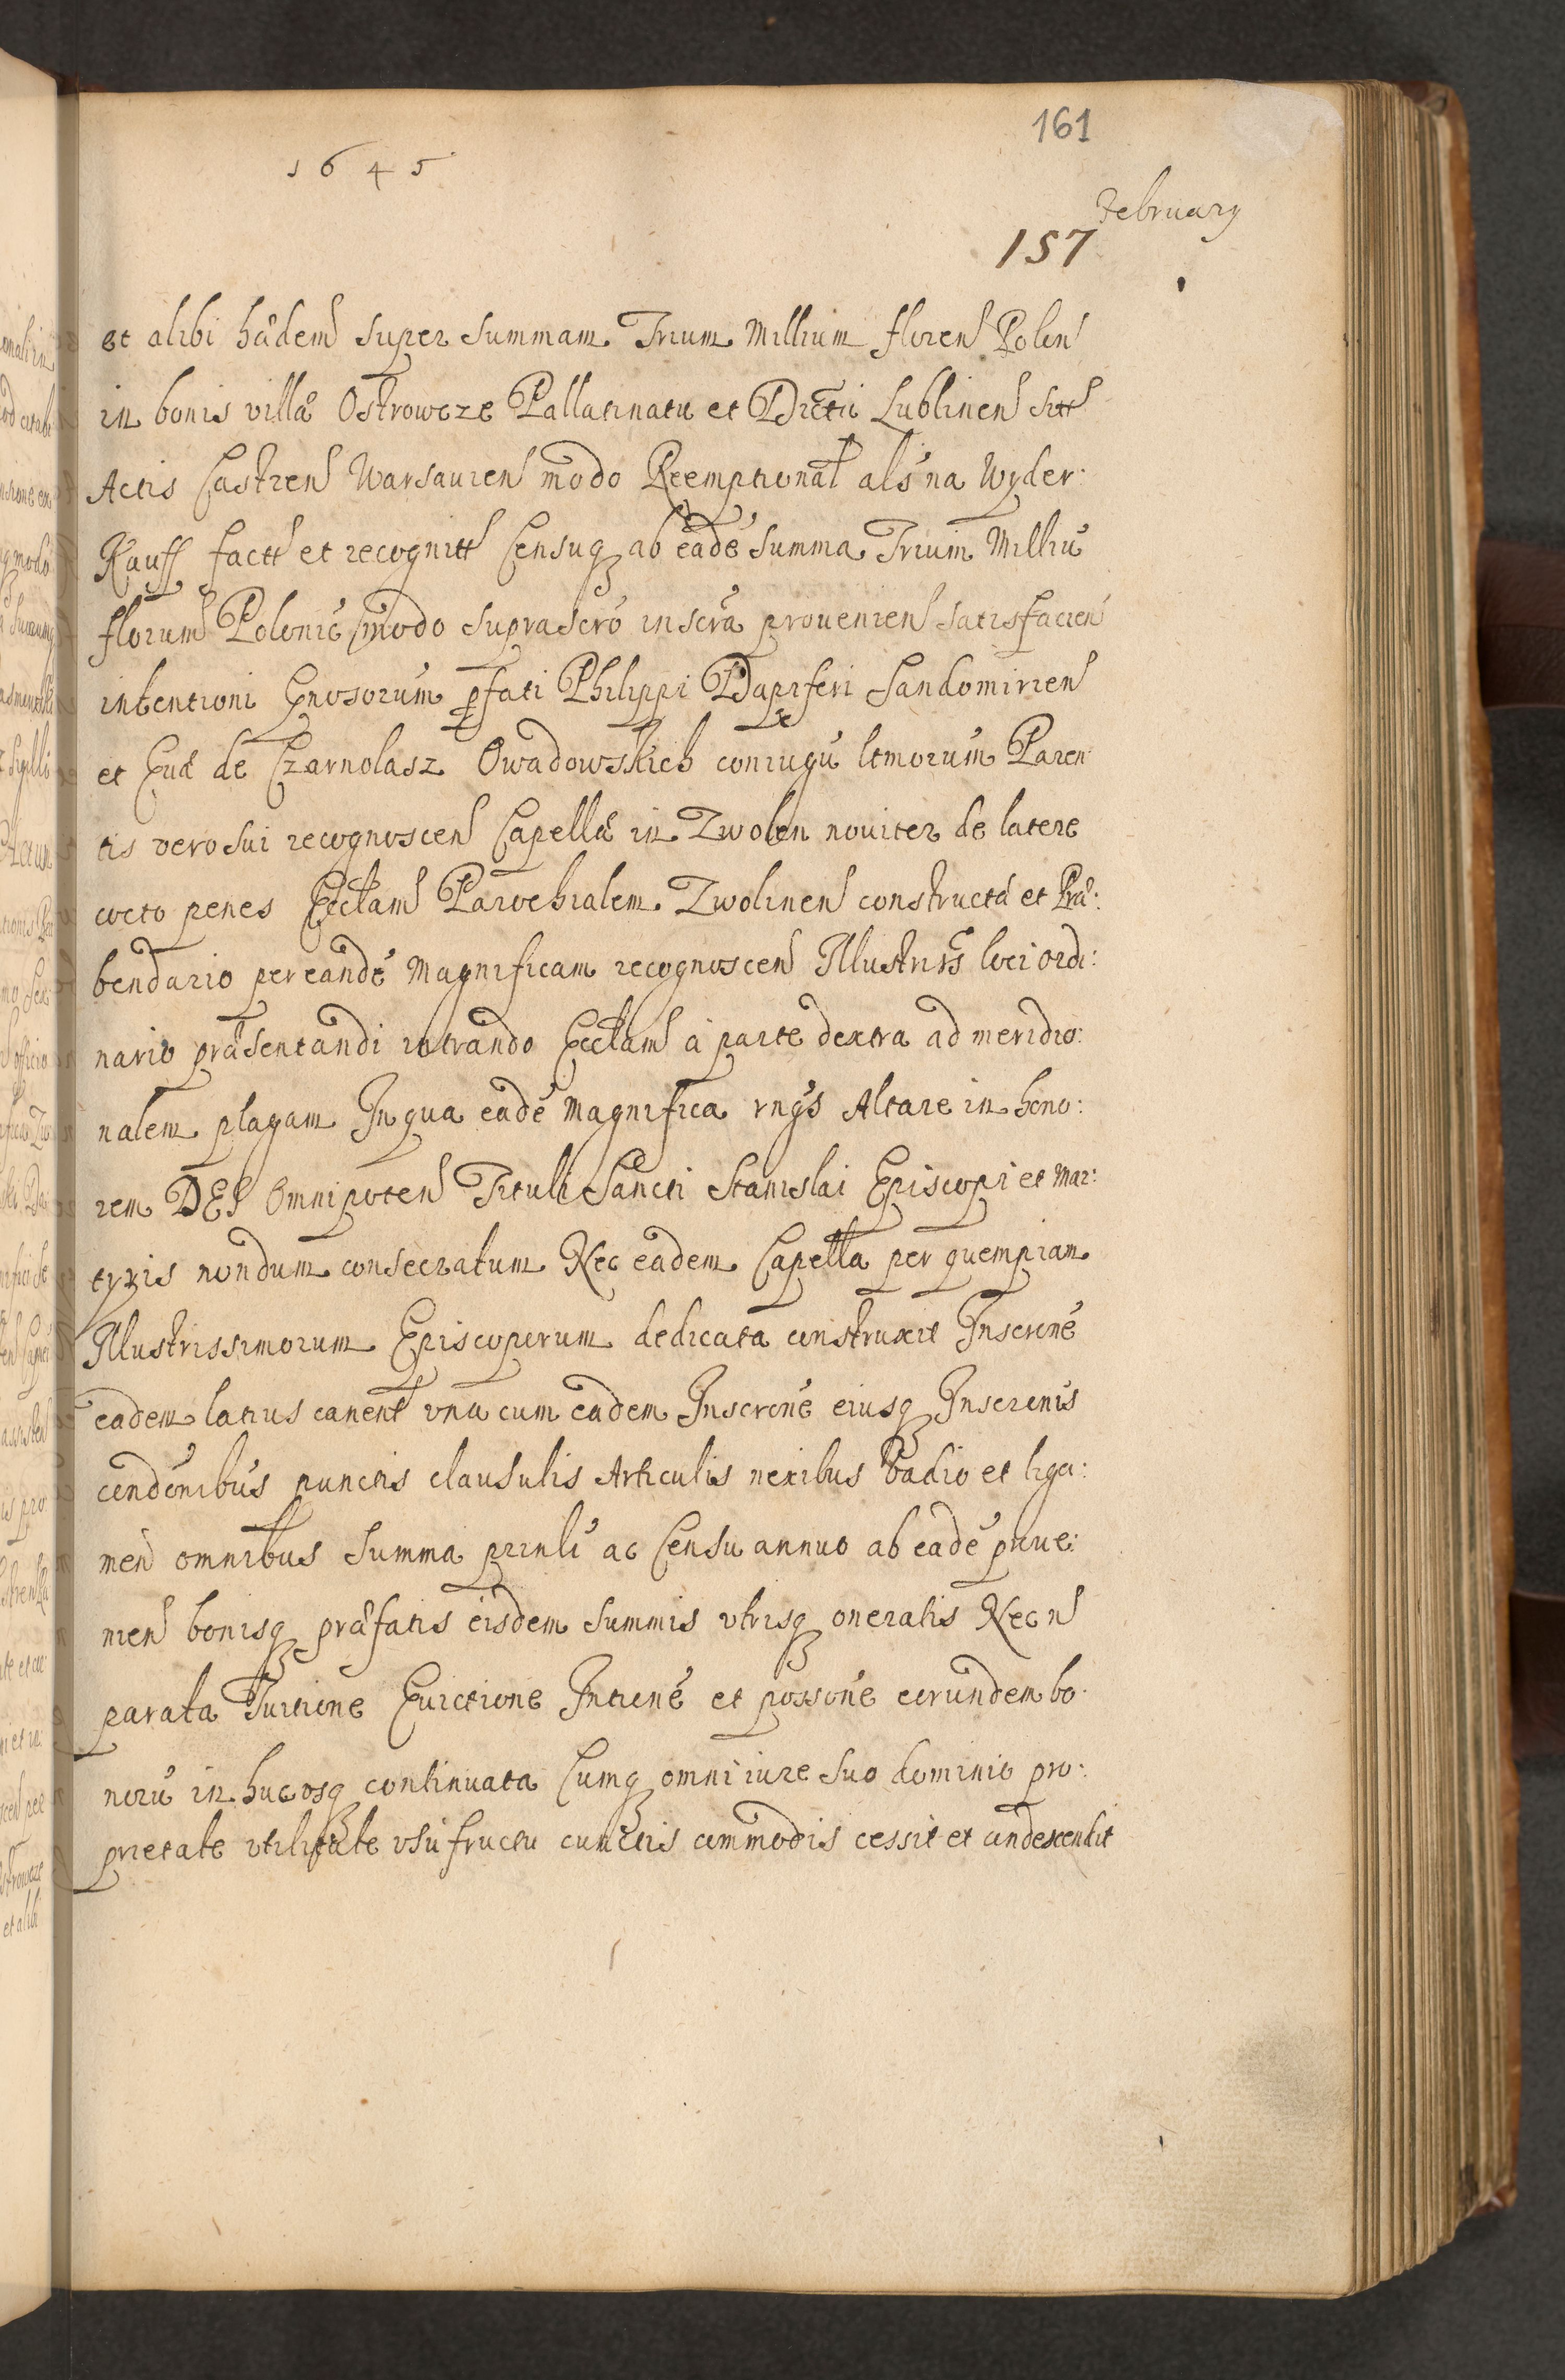 161
1645
February
157
et alibi hãdem super summam Trium Millium floren Polon
in bonis villæ Ostrowcze Pallatinatu et Dictii Lublinen sitt
Actis Castren Warsauien modo Reemptional als na Wyder:
Kauff factt et recognitt Censuq ab eadé summa Trium Milliu
florum Polonic modo suprascro inscra prouenien satisfacien
intentioni Gnosorum pfati Philippi Dapiferi Sandomirien
et Euæ de Czarnolasz Owadowskich coniugu ltmorum Paren
tis vero sui recognoscen Capellæ in Zwolen nouiter de latere
cocto penes Eccłam Parochialem Zwolinen constructæ et Præ:
bendario per eandé Magnificam recognoscen Illustris loci ordi:
nario præsentandi intrando Eccłam á parte dextra ad meridio:
nalem plagam In qua eadé Magnifica rngs Altare in hono:
rem DEI Omnipoten Tituli Sancti Stanislai Episcopi et Mar:
tyris nondum consecratum Nec eadem Capella per quempiam
Illustrissimorum Episcoporum dedicata construxit Inscroné
eadem latius canent vna cum eadem Inscroné eiusq Inscronis
condonibus punctis clausulis Articulis nexibus Vadio et liga:
men omnibus Summa prinli ac Censu annuo ab eadé proue:
nien bonisq præfatis eisdem summis vtrisq oneratis Nec n
parata Tuitione Euictione Intioné et possoné eorundem bo
noru in hucusq continuata Cumq omni iure suo dominio pro:
prietate vtilitate vsufructu cunctis commodis cessit et condescendit